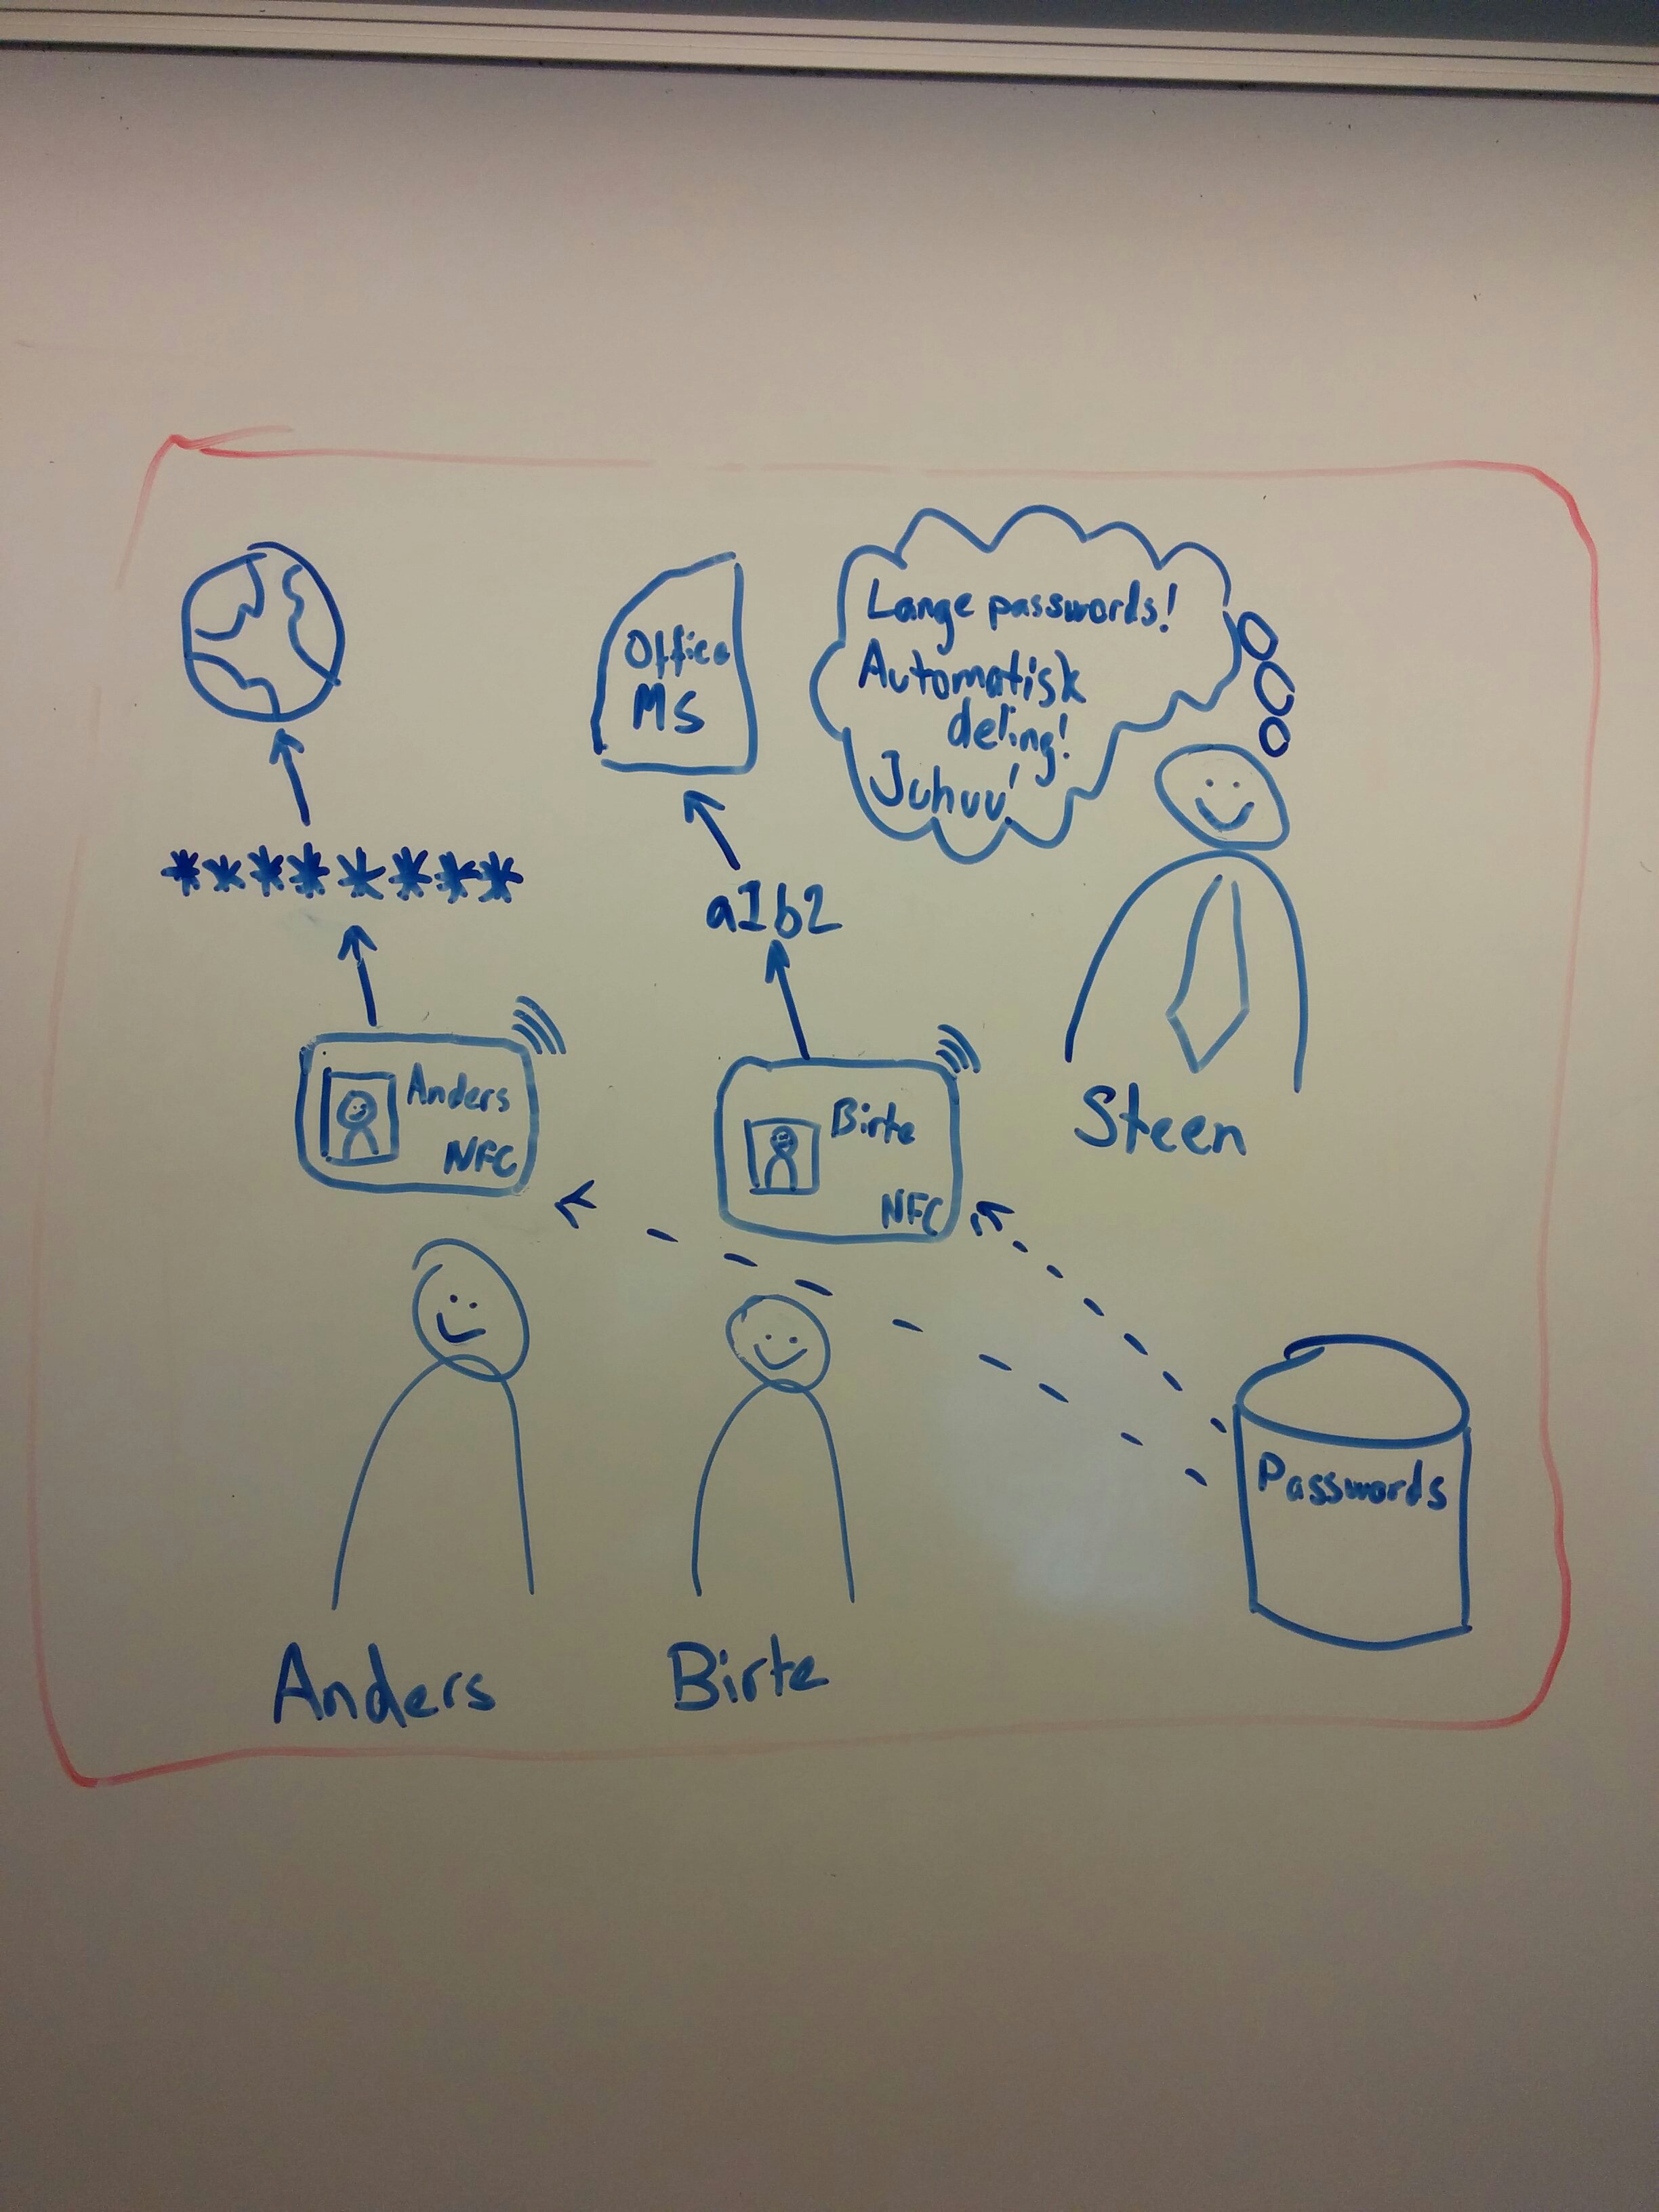 Office
MS
Lange passwords!
Automatisk
deling!
Juhuu!
********
a1b2
Anders
NFC
Birte
NFC
Steen
Passwords
Anders
Birte